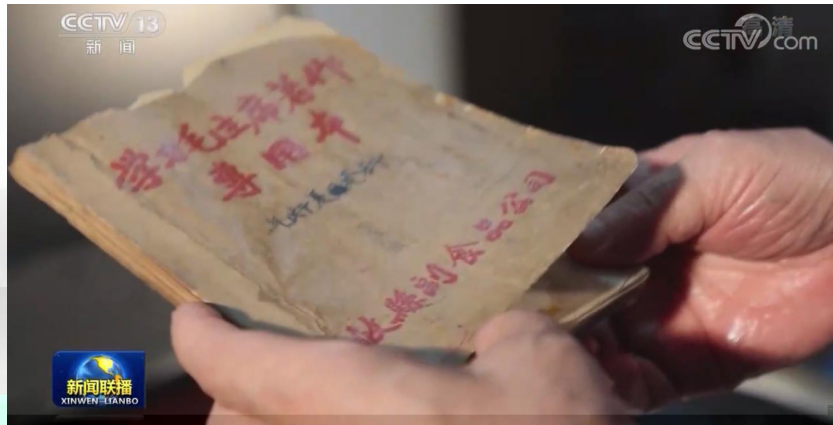 CCTV 13
新闻
高清
CCTV com
学习毛主席著作
专用本
县副食品公司
新闻联播
XINWEN-LIANBO